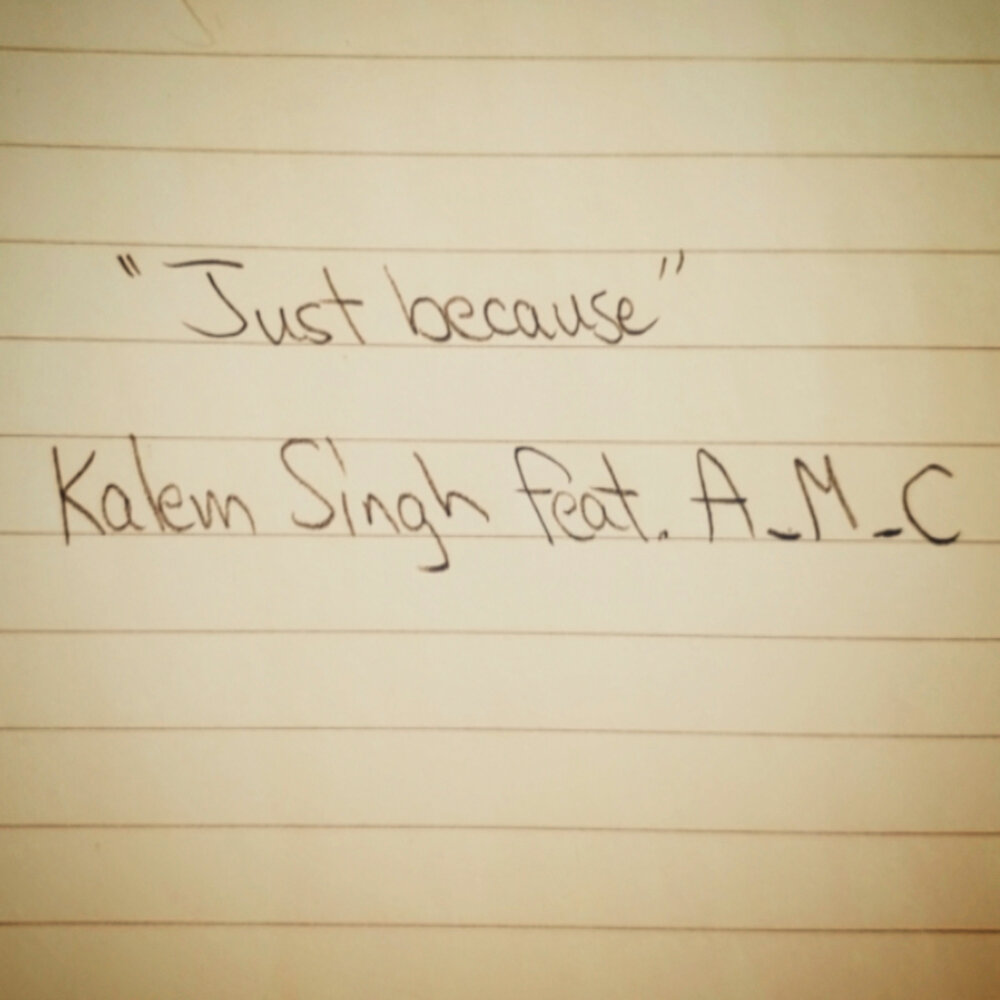 "Just because"
Kalem Singh feat. A-M-C